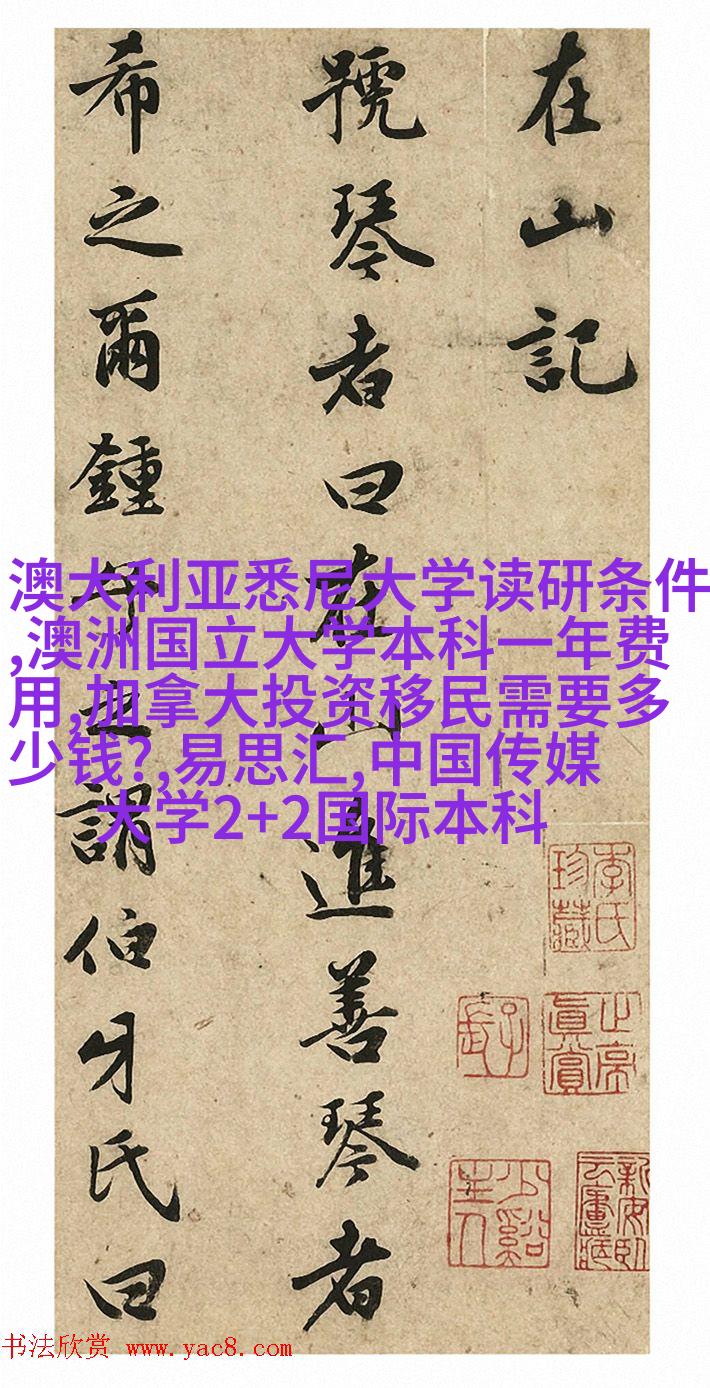 在山記
號琴者曰在山進善琴者
希之爾鍾謂伯牙氏曰
澳大利亚悉尼大学读研条件
,澳洲国立大学本科一年费
用,加拿大投资移民需要多
少钱?,易思汇,中国传媒
大学2+2国际本科
李氏珍藏
少谿主人
书法欣赏 www.yac8.com